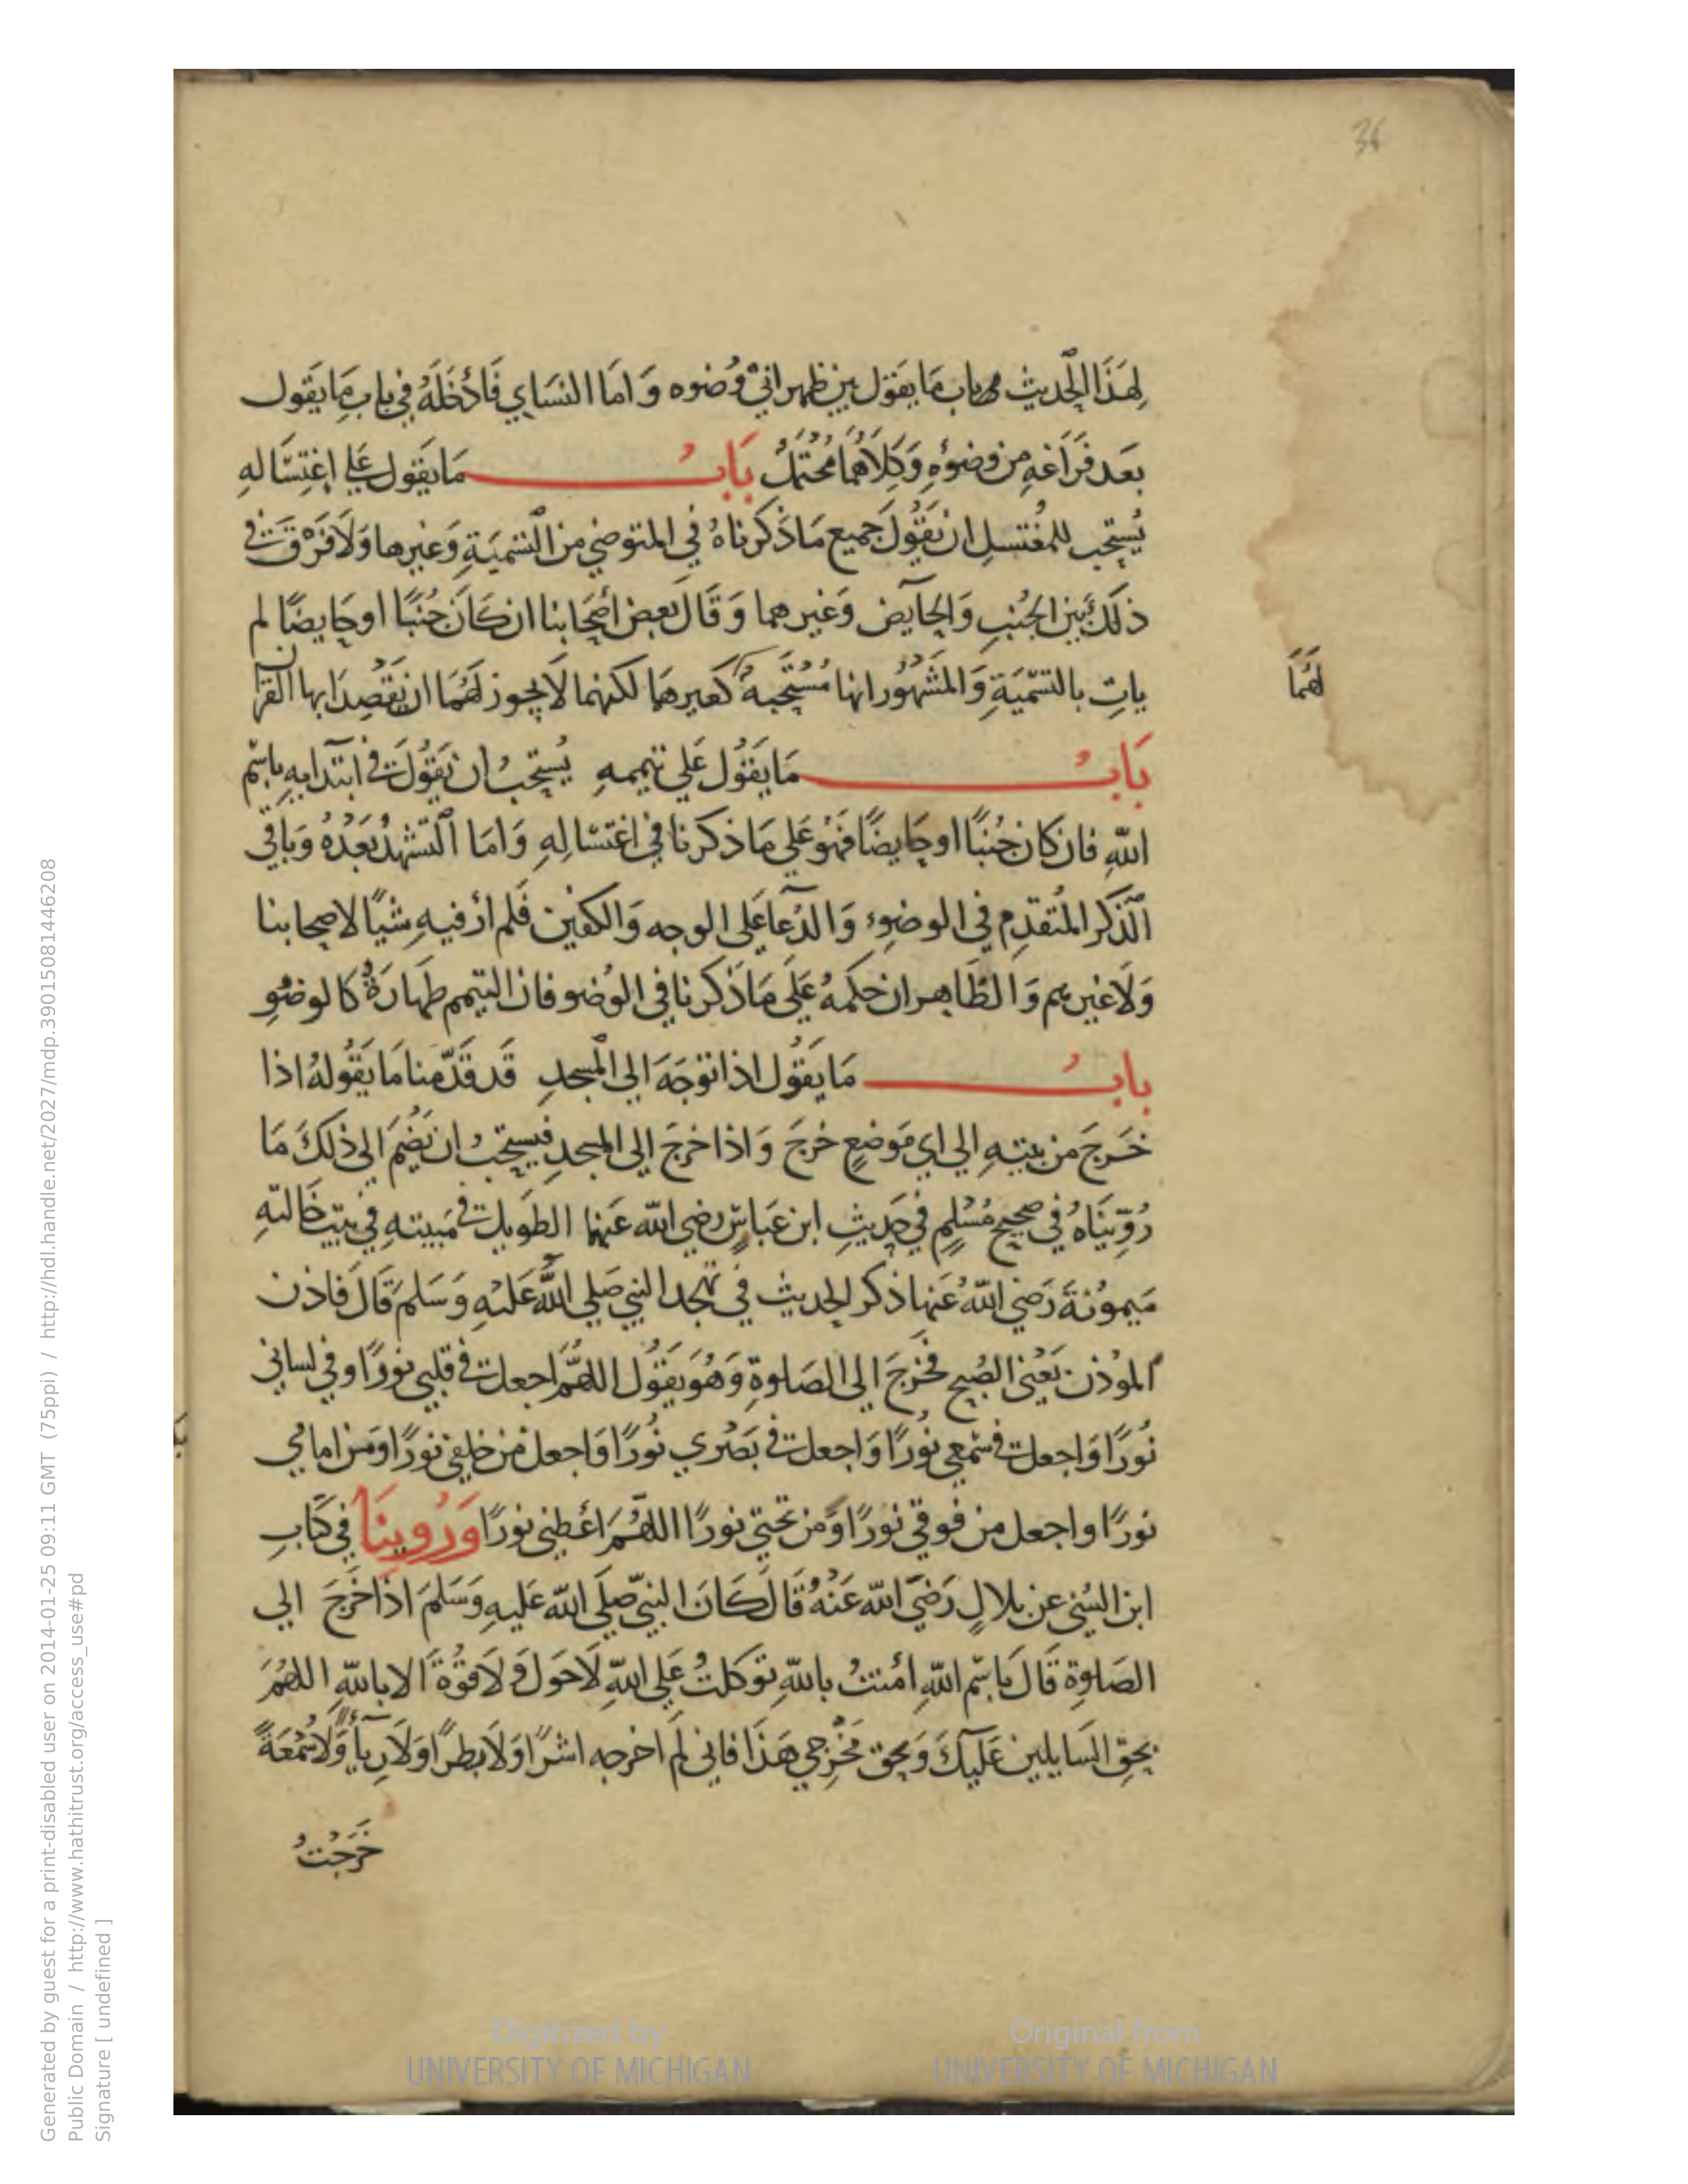 36
لِهَذَا الحَديث باب مَا يقوُل بين ظهراني وُضوه وَامَا النسَاي فَادُخَلَهُ في بابِ مَا يَقول
بَعد فَرَاغهِ من وضوُءِهِ وَكِلَاهُمَا مُحتَمَلُ بَابُ مَا يَقول علي اغتِسَالهِ
يُستحَب للمغُتسلِ ان يَقُولَ جَميع مَا ذَكرناهُ في المتوضي من التسَميَةِ وَغيرها وَلَا فَرْقَ في
ذلكَ بَين الجُنبِ وَالحآيض وَغيرهما وَقَالَ بَعض أصحَابنا ان كَانَ جُنبًا او حَايضًا لم
ياتِ بالتسَّميَةِ وَالمشَهُوُر انها مُستَحَبة كَغيرهمَا لكنهما لَا يجوز لَهُمَا ان يَقْصِدَا بها القرآن
لَهُمَا
بَابُ مَا يَقُول عَلي تيممهِ يُستحَبُ ان يَقوُلَ في ابتدَايهِ باسْم
اللّهِ فان كان جُنبًا او حَايضًا فَهُو عَلي مَا ذكرنا في اغتسَالِهِ وَامَا التَشهدُ بَعَدُهُ وَبَاقي
الذكر المُتقدِم في الوضوِء وَالدُعآ عَلى الوجه وَالكفين فَلم ار فيهِ شيًا لاصحابنا
وَلَا غيرهم وَالظَاهر ان حكمهُ عَلَى مَا ذَكرنا في الوُضو فان التيمم طهارَةٌ كالوضوُِ
بابُ مَا يقوُل اذا توجَهَ الي المسَجدِ قَد قَدَّمنا مَا يَقُولهُ اذا
خَرَجَ من بيتهِ الي اي مَوضعٍ خرَجَ وَاذا خرَجَ الي المسجدِ فيستحَبُ ان يَضُمَ الي ذلكَ مَا
رُوِّينَاهُ في صحيح مُسْلِمٍ في حَديثِ ابن عَباسٍ رضي اللّه عَنهما الطويل في مَبيتهِ في بيت خَالتهِ
مَيموُنةَ رَضي اللّهُ عَنها ذكر الحديث في تهجد النبي صَلي اللَّهُ عَليْهِ وَسَلمَ قَالَ فاذن
المؤذن يَعْني الصُبح فخرَجَ الي الصَلوةِ وَهُوَ يَقوُل اللهُمَّ اجعل في قلبي نورًا وفي لساني
نُورًا وَاجعل في سَمْعي نُورًا وَاجعل في بَصَري نُورًا وَاجعل من خلفي نورًا وَمن امامي
نورًا واجعل من فوقي نورًا وَمن تحتي نورًا اللهُمَ اعْطني نورًا وَرُوينَا في كتَابِ
ابن السُني عن بلالٍ رَضَي اللّه عَنْهُ قَالَ كَانَ النبيّ صَلَي اللّه عَليهِ وَسَلمَ اذا خَرجَ الي
الصَلوةِ قَالَ بَاسْم اللّهِ اَمنتُ باللّهِ توكلتُ عَلي اللّهِ لَا حَول وَلَا قوُةَ الا باللّهِ اللهُمَ
بحَقِ السَايلين عَليكَ وَبحَق مَخْرجي هَذَا فاني لَم اخرجه اشرًا وَلَا بطرًا وَلَا رِيآءً وَلَا سُمْعَةً
خَرَجْتُ
Generated by guest for a print-disabled user on 2014-01-25 09:11 GMT (75ppi) / http://hdl.handle.net/2027/mdp.39015081446208
Public Domain / http://www.hathitrust.org/access_use#pd
Signature [ undefined ]
Digitized by
UNIVERSITY OF MICHIGAN
Original from
UNIVERSITY OF MICHIGAN